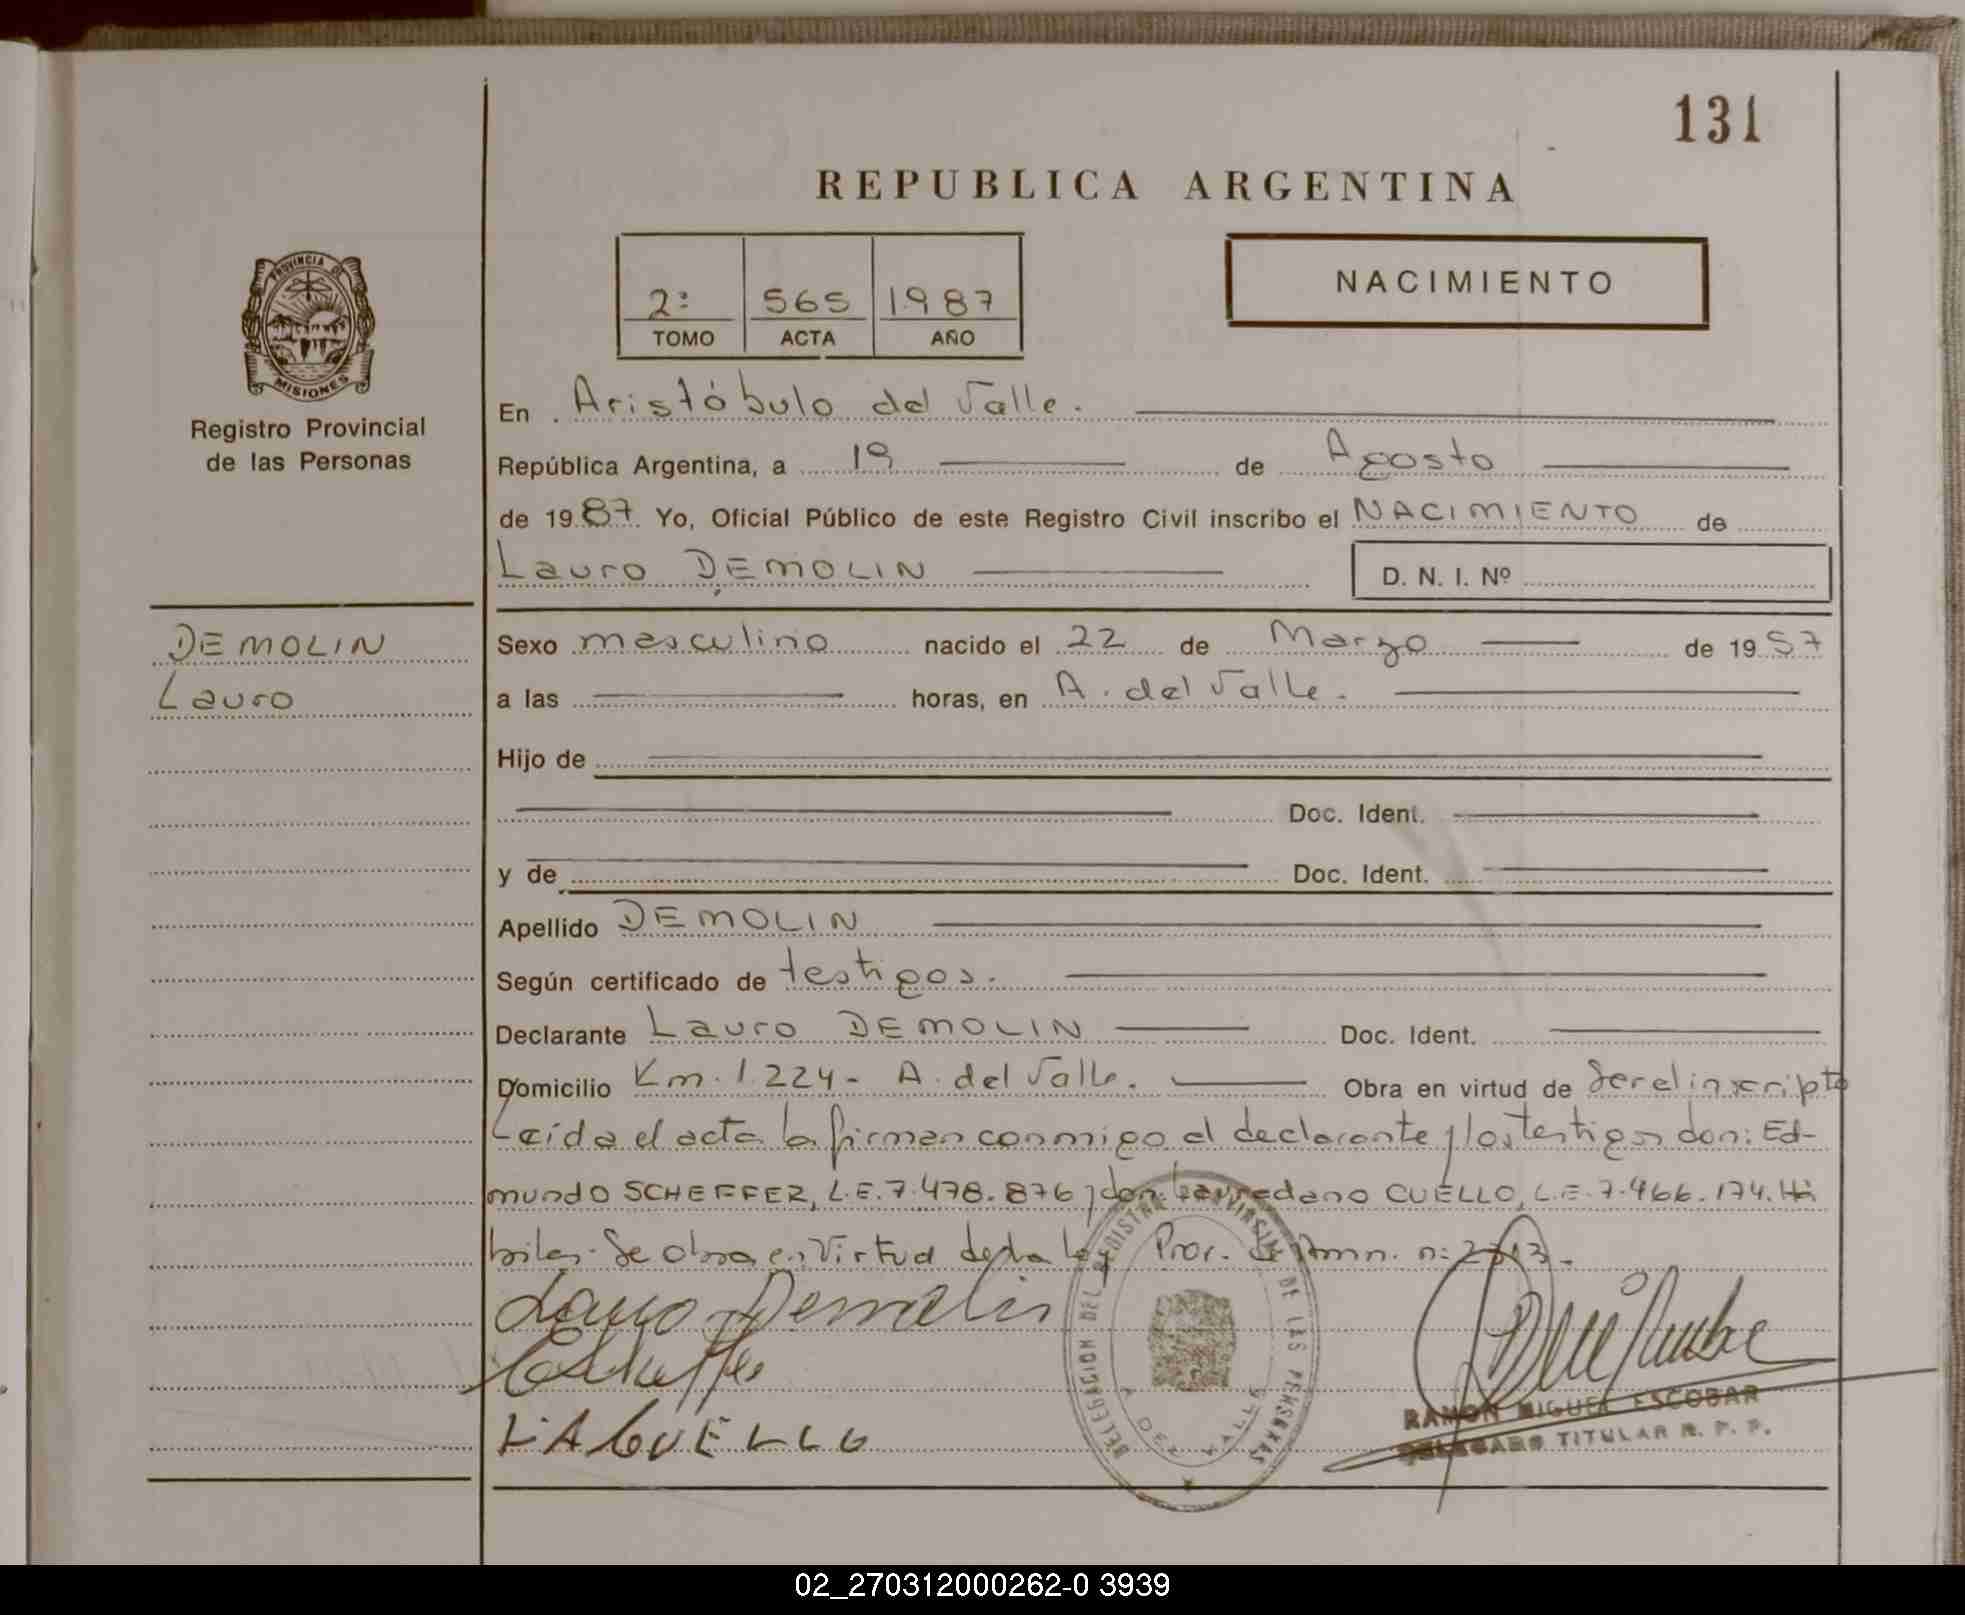 131
REPUBLICA ARGENTINA
PROVINCIA DE
MISIONES
Registro Provincial
de las Personas
2º 565 1987
TOMO ACTA AÑO
NACIMIENTO
En Aristóbulo del Valle.
República Argentina, a 19 de Agosto
de 1987 Yo, Oficial Público de este Registro Civil inscribo el NACIMIENTO de
Lauro DEMOLIN D. N. I. Nº
DEMOLIN
Lauro
Sexo masculino nacido el 22 de Marzo de 1957
a las horas, en A. del Valle.
Hijo de
Doc. Ident.
y de Doc. Ident.
Apellido DEMOLIN
Según certificado de testigos.
Declarante Lauro DEMOLIN Doc. Ident.
Domicilio Km. 1.224- A. del Valle. Obra en virtud de Ser el inscripto
Leída el acta la firman conmigo el declarante y los testigos don: Ed-
mundo SCHEFFER, L.E. 7.478.876 y don: Lauredano CUELLO, L.E. 7.466.174. Há
biles. Se obra en Virtud de la ley Prov. de Amn. n:
Lauro Demolin
L A CUELLO
DELEGACION DEL REGISTRO PROVINCIAL DE LAS PERSONAS
A. DEL VALLE
RAMON MIGUEL ESCOBAR
DELEGADO TITULAR R. P. P.
02_270312000262-0 3939